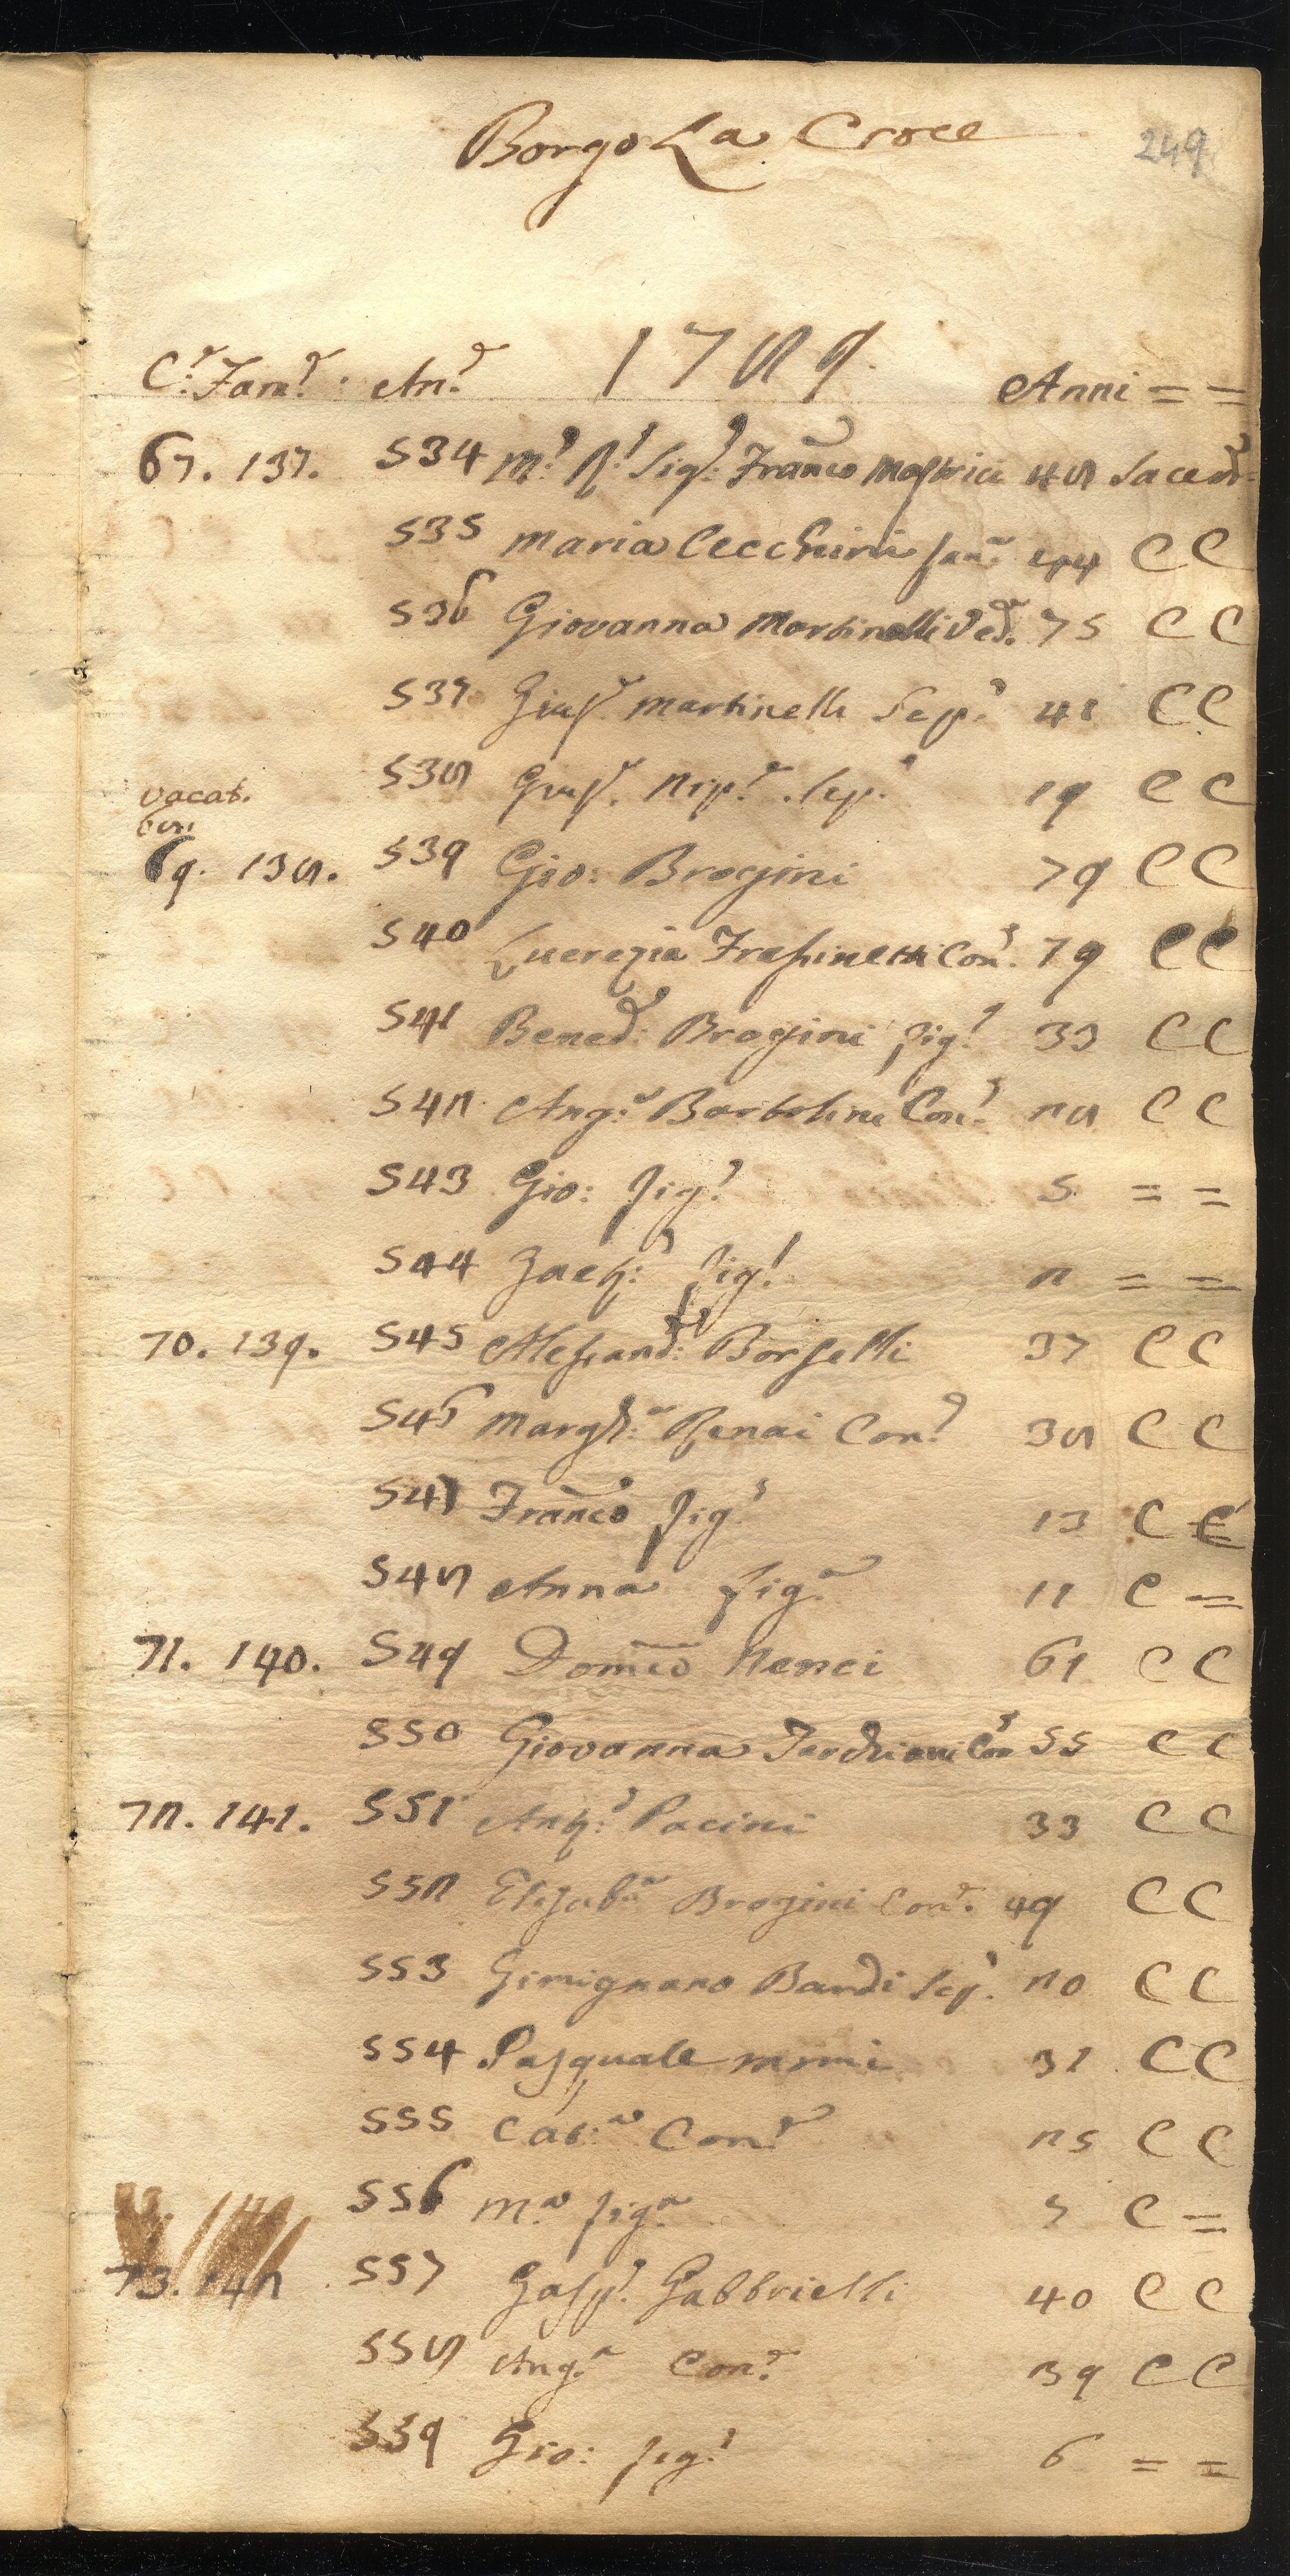 Borgo La Croce
249
C.e Fam.e An.e 1789. Anni = =
67. 137. 534 M.o R.o Sig.e Franco Mastrici 48 Sacerd.
535 Maria Cecchini san.a 44 C C
536 Giovanna Martinelli Ved.a 75 C C
537 Gius.e Martinelli Sep.e 41 C C
538 Gius.e Nip.e Sep.e 19 C C
vacat.
68
69. 138. 539 Gio: Brogini 79 C C
540 Lucrezia Frassinetti Con.e 79 C C
541 Bened.o Brogini fig.o 33 C C
542 Ang.a Bartolini Con.e 28 C C
543 Gio: fig.o 5 = =
544 Zach.a fig.o 2 = =
70. 139. 545 Alessand.o Borselli 37 C C
546 Margh.a Renai Con.e 38 C C
547 Franco fig.o 13 C C
548 Anna fig.a 11 C =
71. 140. 549 Domco Nenci 61 C C
550 Giovanna Con.e 55 C C
72. 141. 551 Ant.o Pacini 33 C C
552 Elisab.a Brogini Con.e 49 C C
553 Gimignano Bardi Sep.e 20 C C
554 Pasquale Mimi 31 C C
555 Cat.a Con.e 25 C C
556 M.a fig.a 5 C =
73. 142 557 Gasp.e Gabbrielli 40 C C
558 Ang.a Con.e 39 C C
559 Gio: fig.o 6 = =